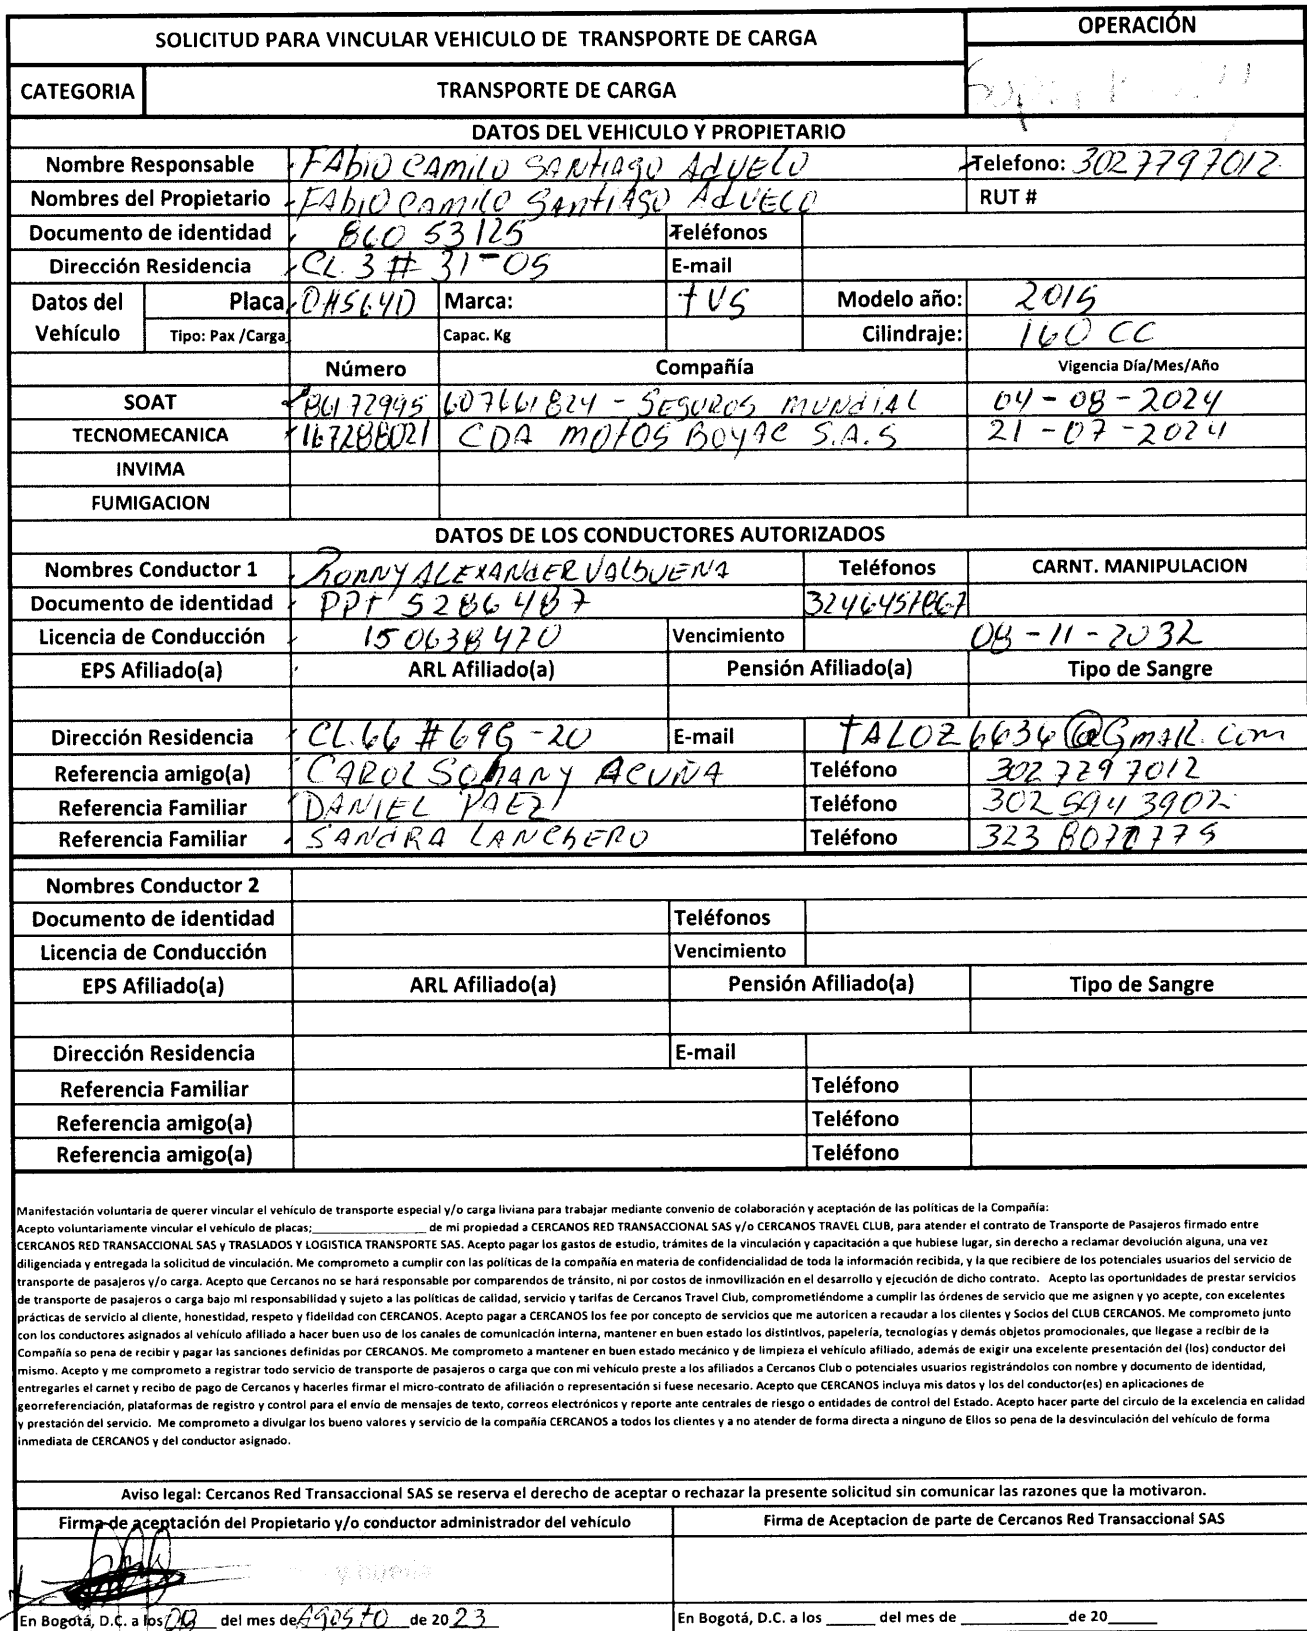 SOLICITUD PARA VINCULAR VEHICULO DE TRANSPORTE DE CARGA
OPERACIÓN
CATEGORIA TRANSPORTE DE CARGA
DATOS DEL VEHICULO Y PROPIETARIO
Nombre Responsable FAbiO CAMilO SANtiAgO AdUElO Telefono: 3027797012
Nombres del Propietario FAbiO CAmilO SAntiAgO AdUElO RUT #
Documento de identidad 86053125 Teléfonos
Dirección Residencia CL 3 # 31-05 E-mail
Datos del Vehículo Placa OHS64D Marca: TVS Modelo año: 2015
Tipo: Pax /Carga Capac. Kg Cilindraje: 160 CC
Número Compañía Vigencia Día/Mes/Año
SOAT 86172995 607661824 - SEGUROS MUNDIAL 04-08-2024
TECNOMECANICA 167288021 CDA MOTOS BOYAC S.A.S 21-07-2024
INVIMA
FUMIGACION
DATOS DE LOS CONDUCTORES AUTORIZADOS
Nombres Conductor 1 RONNY ALEXANdER VALbUENA Teléfonos CARNT. MANIPULACION
Documento de identidad PPT 5286487 3246457867
Licencia de Conducción 150638470 Vencimiento 08-11-2032
EPS Afiliado(a) ARL Afiliado(a) Pensión Afiliado(a) Tipo de Sangre
Dirección Residencia CL.66 # 69G-20 E-mail TALOZ6636@GmAIL.com
Referencia amigo(a) CAROL ACUÑA Teléfono 3027297012
Referencia Familiar DANIEL PAEZ Teléfono 3025943902
Referencia Familiar SANdRA LANChERO Teléfono
Nombres Conductor 2
Documento de identidad Teléfonos
Licencia de Conducción Vencimiento
EPS Afiliado(a) ARL Afiliado(a) Pensión Afiliado(a) Tipo de Sangre
Dirección Residencia E-mail
Referencia Familiar Teléfono
Referencia amigo(a) Teléfono
Referencia amigo(a) Teléfono
Manifestación voluntaria de querer vincular el vehículo de transporte especial y/o carga liviana para trabajar mediante convenio de colaboración y aceptación de las políticas de la Compañía:
Acepto voluntariamente vincular el vehículo de placas;________________ de mi propiedad a CERCANOS RED TRANSACCIONAL SAS y/o CERCANOS TRAVEL CLUB, para atender el contrato de Transporte de Pasajeros firmado entre
CERCANOS RED TRANSACCIONAL SAS y TRASLADOS Y LOGISTICA TRANSPORTE SAS. Acepto pagar los gastos de estudio, trámites de la vinculación y capacitación a que hubiese lugar, sin derecho a reclamar devolución alguna, una vez
diligenciada y entregada la solicitud de vinculación. Me comprometo a cumplir con las políticas de la compañía en materia de confidencialidad de toda la información recibida, y la que recibiere de los potenciales usuarios del servicio de
transporte de pasajeros y/o carga. Acepto que Cercanos no se hará responsable por comparendos de tránsito, ni por costos de inmovilización en el desarrollo y ejecución de dicho contrato. Acepto las oportunidades de prestar servicios
de transporte de pasajeros o carga bajo mi responsabilidad y sujeto a las políticas de calidad, servicio y tarifas de Cercanos Travel Club, comprometiéndome a cumplir las órdenes de servicio que me asignen y yo acepte, con excelentes
prácticas de servicio al cliente, honestidad, respeto y fidelidad con CERCANOS. Acepto pagar a CERCANOS los fee por concepto de servicios que me autoricen a recaudar a los clientes y Socios del CLUB CERCANOS. Me comprometo junto
con los conductores asignados al vehículo afiliado a hacer buen uso de los canales de comunicación interna, mantener en buen estado los distintivos, papelería, tecnologías y demás objetos promocionales, que llegase a recibir de la
Compañía so pena de recibir y pagar las sanciones definidas por CERCANOS. Me comprometo a mantener en buen estado mecánico y de limpieza el vehículo afiliado, además de exigir una excelente presentación del (los) conductor del
mismo. Acepto y me comprometo a registrar todo servicio de transporte de pasajeros o carga que con mi vehículo preste a los afiliados a Cercanos Club o potenciales usuarios registrándolos con nombre y documento de identidad,
entregarles el carnet y recibo de pago de Cercanos y hacerles firmar el micro-contrato de afiliación o representación si fuese necesario. Acepto que CERCANOS incluya mis datos y los del conductor(es) en aplicaciones de
georreferenciación, plataformas de registro y control para el envío de mensajes de texto, correos electrónicos y reporte ante centrales de riesgo o entidades de control del Estado. Acepto hacer parte del circulo de la excelencia en calidad
y prestación del servicio. Me comprometo a divulgar los bueno valores y servicio de la compañía CERCANOS a todos los clientes y a no atender de forma directa a ninguno de Ellos so pena de la desvinculación del vehículo de forma
inmediata de CERCANOS y del conductor asignado.
Aviso legal: Cercanos Red Transaccional SAS se reserva el derecho de aceptar o rechazar la presente solicitud sin comunicar las razones que la motivaron.
Firma de aceptación del Propietario y/o conductor administrador del vehículo Firma de Aceptacion de parte de Cercanos Red Transaccional SAS
En Bogotá, D.C. a los del mes de AgOSTO de 2023 En Bogotá, D.C. a los _____ del mes de ___________ de 20_____